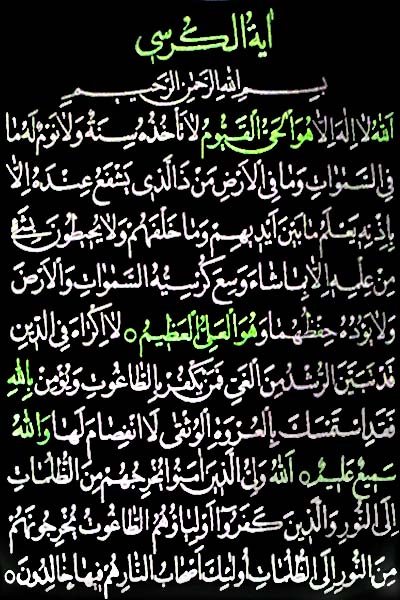 آية الكرسي
بسم الله الرحمن الرحيم
الله لا اله الا هو الحي القيوم لا تأخذه سنة ولا نوم له ما
في السموات وما في الارض من ذا الذي يشفع عنده الا
باذنه يعلم ما بين ايديهم وما خلفهم ولا يحيطون بشئ
من علمه الا بما شاء وسع كرسيه السموات والارض
ولا يؤده حفظهما وهو العلي العظيم ○ لا اكراه في الدين
قد تبين الرشد من الغي فمن يكفر بالطاغوت ويؤمن بالله
فقد استمسك بالعروة الوثقى لا انفصام لها والله
سميع عليم ○ الله ولي الذين امنوا يخرجهم من الظلمات
الى النور والذين كفروا اولياؤهم الطاغوت يخرجونهم
من النور الى الظلمات اولئك اصحاب النار هم فيها خالدون ○